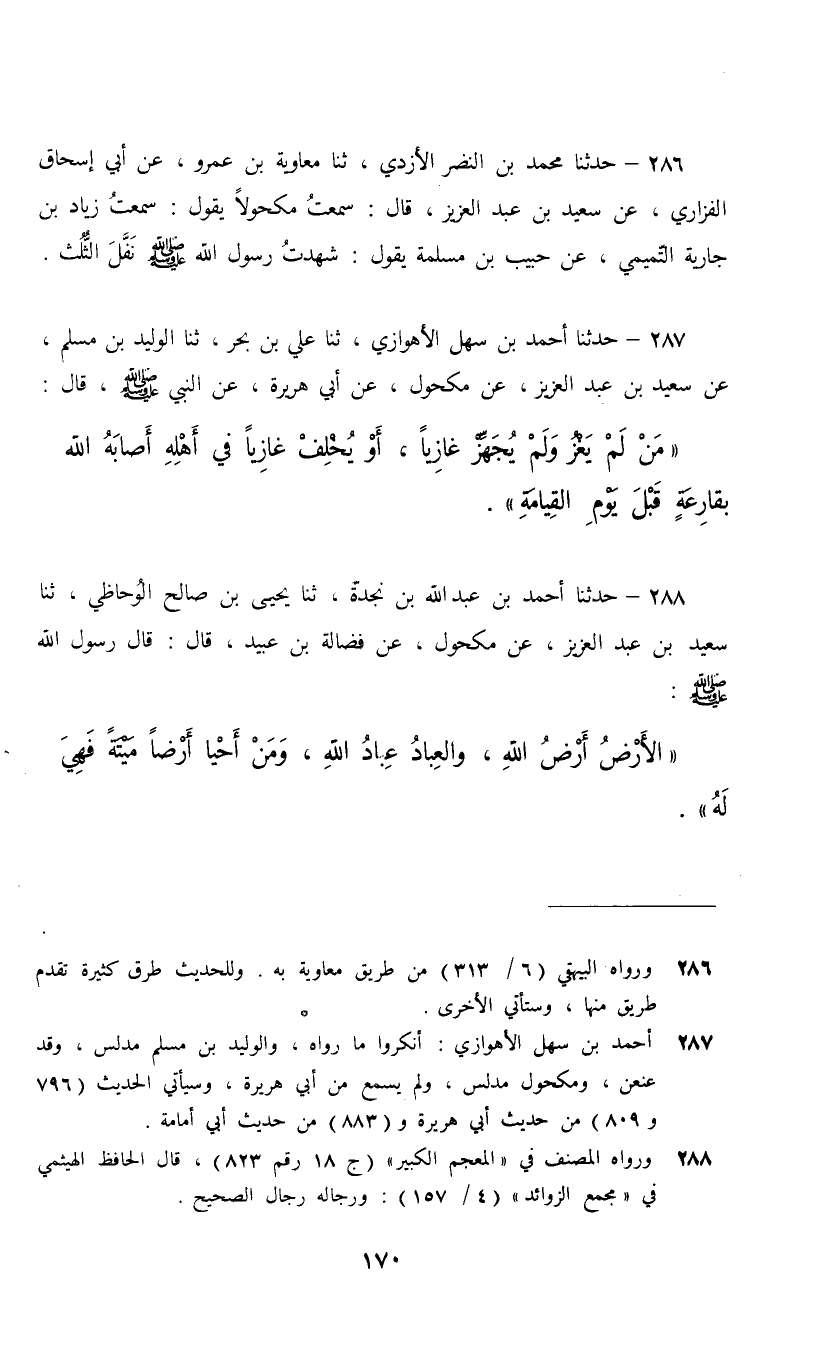 ٢٨٦ – حدثنا محمد بن النضر الأزدي ، ثنا معاوية بن عمرو ، عن أبي إسحاق
الفزاري ، عن سعيد بن عبد العزيز ، قال : سمعتُ مكحولاً يقول : سمعتُ زياد بن
جارية التّميمي ، عن حبيب بن مسلمة يقول : شهدتُ رسول الله ﷺ نَفَّلَ الثُّلث .
٢٨٧ – حدثنا أحمد بن سهل الأهوازي ، ثنا علي بن بحر ، ثنا الوليد بن مسلم ،
عن سعيد بن عبد العزيز ، عن مكحول ، عن أبي هريرة ، عن النبي ﷺ ، قال :
« مَنْ لَمْ يَغْزُ وَلَمْ يُجَهِّزْ غازِياً ، أَوْ يُخْلِفْ غازِياً في أَهْلِهِ أَصابَهُ الله
بقارِعَةٍ قَبْلَ يَوْمِ القِيامَةِ » .
٢٨٨ – حدثنا أحمد بن عبد الله بن نجدة ، ثنا يحيى بن صالح الوُحاظي ، ثنا
سعيد بن عبد العزيز ، عن مكحول ، عن فضالة بن عبيد ، قال : قال رسول الله
ﷺ :
« الأَرْضُ أَرْضُ اللهِ ، والعِبادُ عِبادُ اللهِ ، وَمَنْ أَحْيا أَرْضاً مَيْتَةً فَهِيَ
لَهُ » .
٢٨٦ ورواه البيهقي ( ٦ / ٣١٣ ) من طريق معاوية به . وللحديث طرق كثيرة تقدم
طريق منها ، وستأتي الأخرى .
٢٨٧ أحمد بن سهل الأهوازي : أنكروا ما رواه ، والوليد بن مسلم مدلس ، وقد
عنعن ، ومكحول مدلس ، ولم يسمع من أبي هريرة ، وسيأتي الحديث ( ٧٩٦
و ٨٠٩ ) من حديث أبي هريرة و ( ٨٨٣ ) من حديث أبي أمامة .
٢٨٨ ورواه المصنف في « المعجم الكبير » ( ج ١٨ رقم ٨٢٣ ) ، قال الحافظ الهيثمي
في « مجمع الزوائد » ( ٤ / ١٥٧ ) : ورجاله رجال الصحيح .
١٧٠